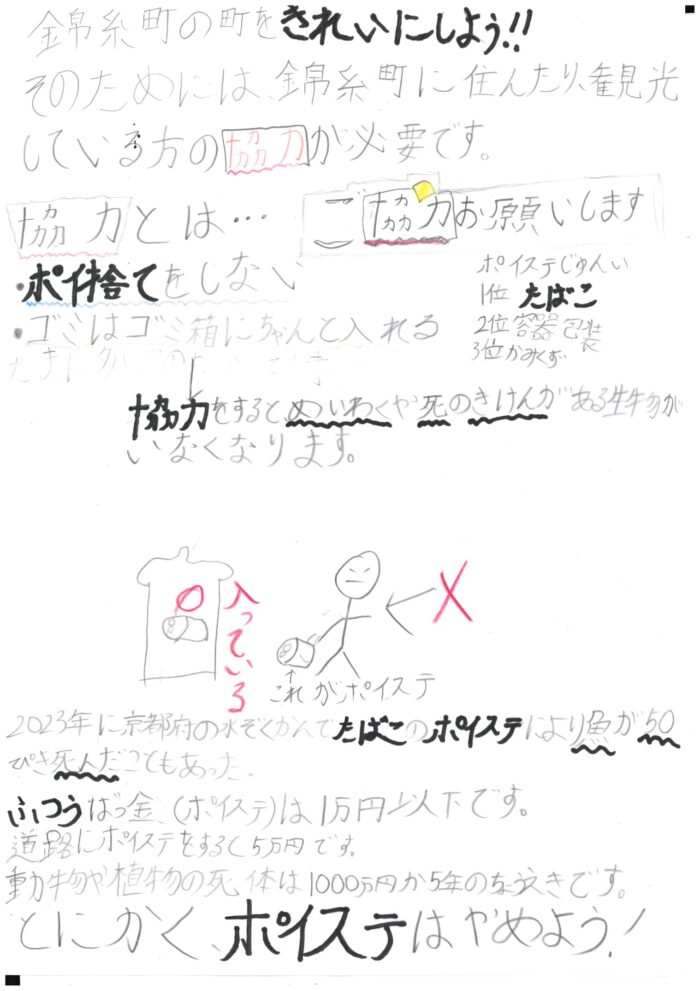 錦糸町の町をきれいにしよう!!
そのためには、錦糸町に住んだり、観光
している方の協力が必要です。
協力とは…
ご協力お願いします
・ポイ捨てをしない
・ゴミはゴミ箱にちゃんと入れる
ポイステじゅんい
1位 たばこ
2位 容器包装
3位 かみくず
協力をすると、めいわくや死のきけんがある生物が
いなくなります。
入っている
これがポイステ
2023年に京都府の水ぞくかんでたばこのポイステにより魚が50
ぴき死んだこともあった。
ふつうばっ金、(ポイステ)は1万円以下です。
道路にポイステをすると5万円です。
動物や植物の死体は1000万円か5年のちょうえきです。
とにかく、ポイステはやめよう!